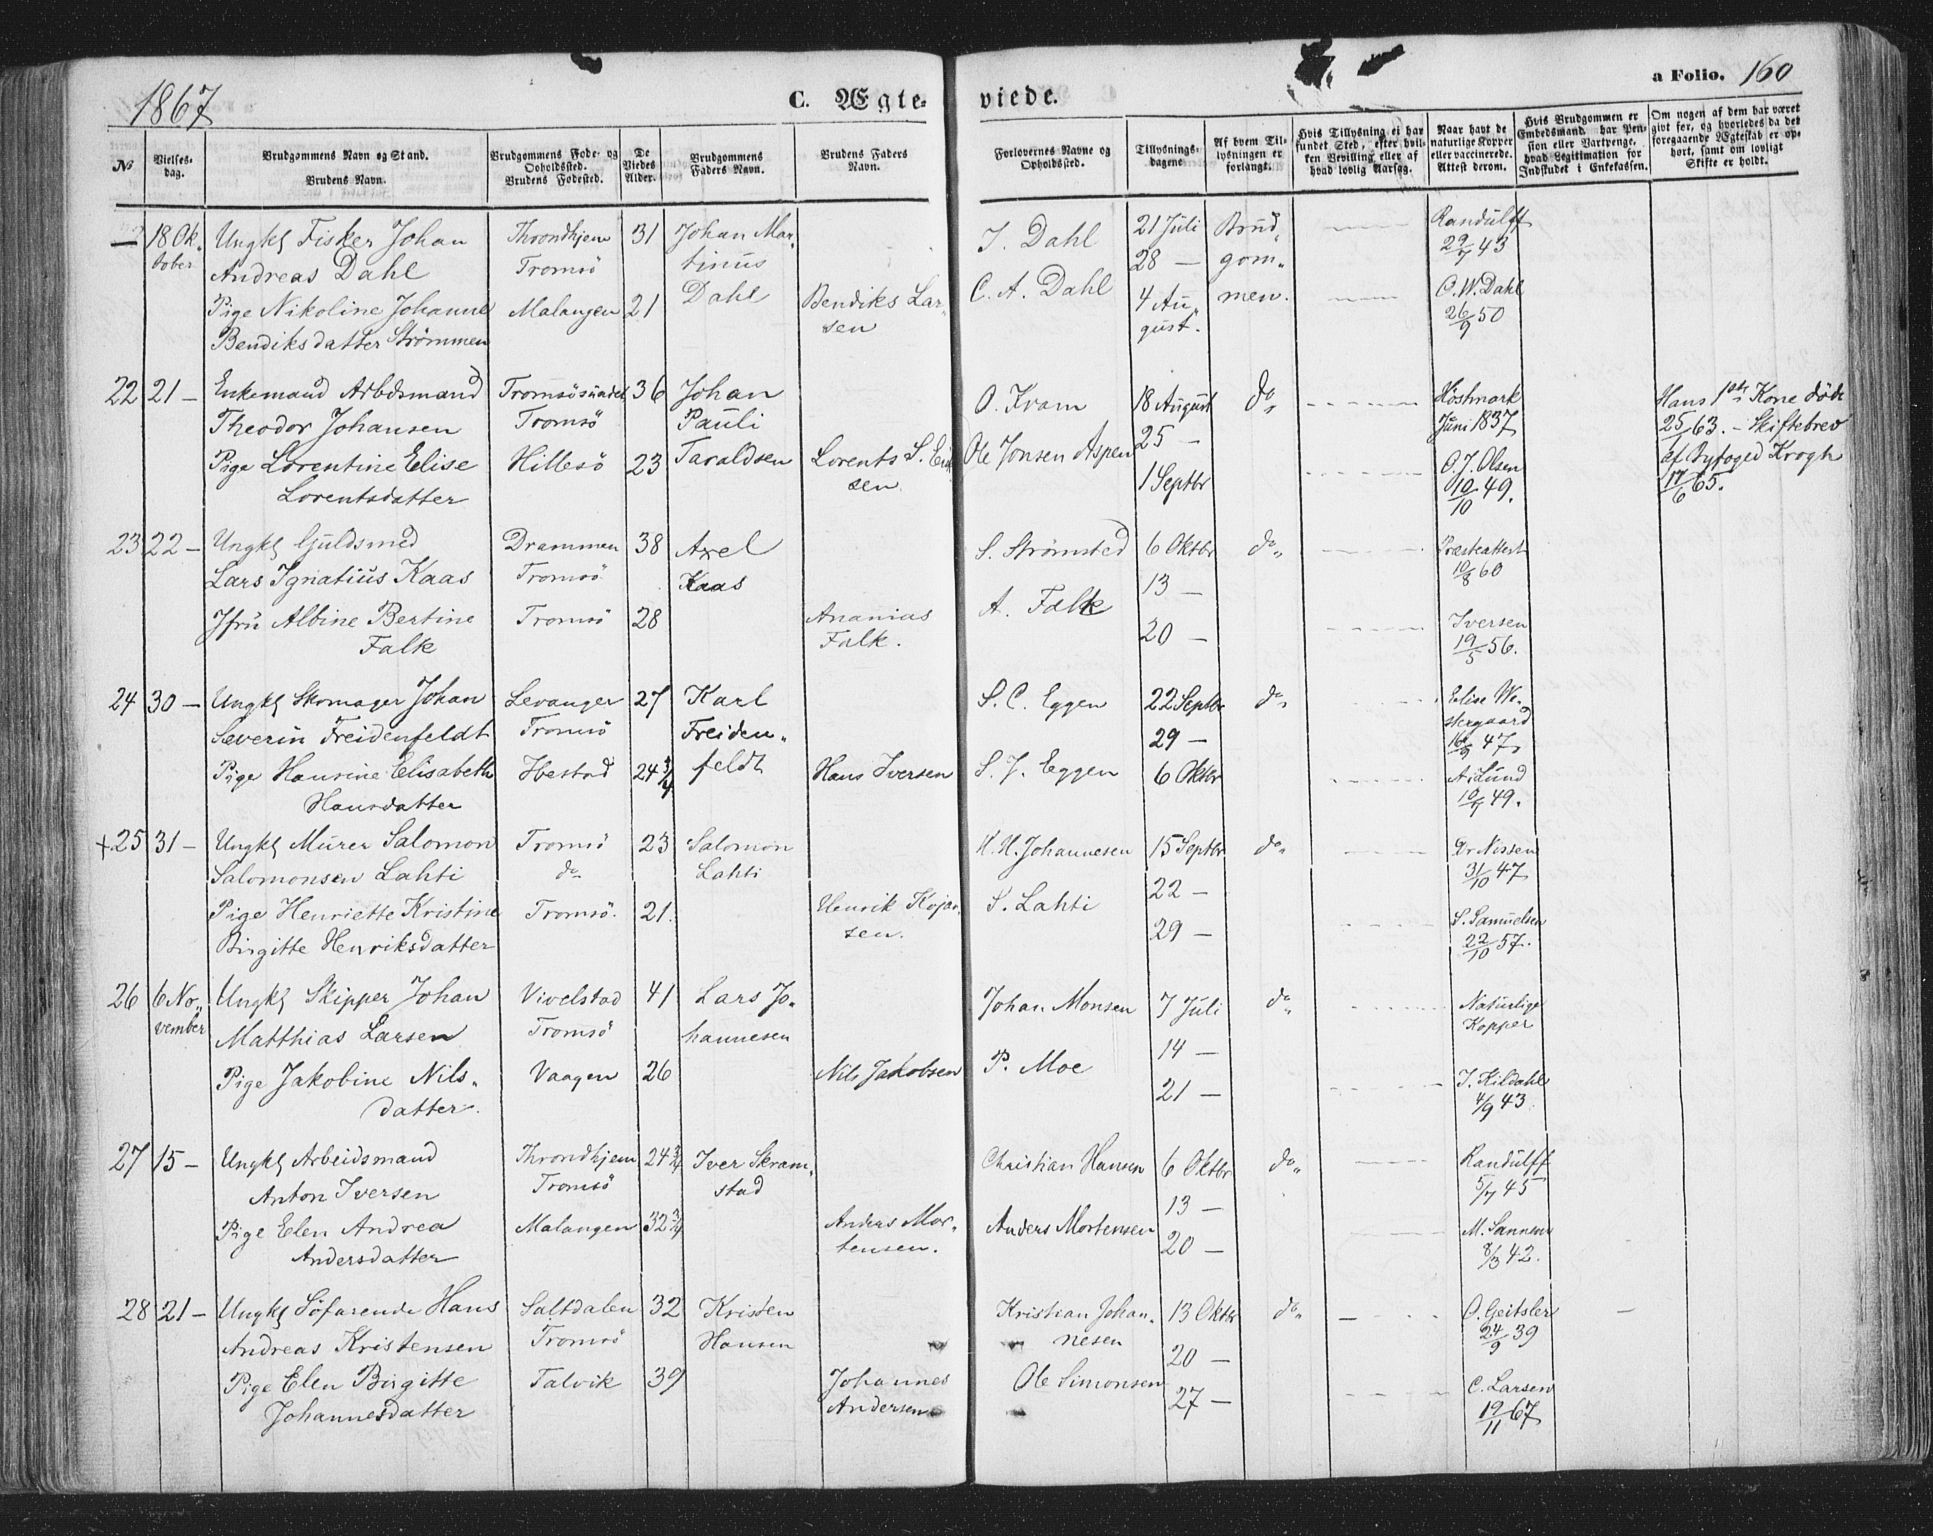 1867
C. Ægte-
viede.
a Folio. 160
No
Vielses-
dag.
Brudgommens Navn og Stand.
Brudens Navn.
Brudgommens Føde- og
Opholdssted.
Brudens Fødested.
De
Viedes
Alder.
Brudgommens
Faders Navn.
Brudens Faders
Navn.
Forlovernes Navne og
Opholdssted.
Tillysnings-
dagene.
Af hvem Til-
lysningen er
forlangt.
Hvis Tillysning ei har
fundet Sted, efter hvil-
ken Bevilling eller af
hvad lovlig Aarsag.
Naar havt de
naturlige Kopper
eller vaccinerede.
Attest derom.
Hvis Brudgommen er
Embedsmand, har Pen-
sion eller Vartpenge,
hvad Legitimation for
Indskudet i Enkekassen.
Om nogen af dem har været
gift før, og hvorledes da det
foregaaende Ægteskab er op-
hørt, samt om lovligt
Skifte er holdt.
— 18 Ok- Ungkl Fisker Johan Throndhjem 31 Johan Mar- J. Dahl 21 Juli Brud- Randulff
tober Andreas Dahl Tromsö tinus 28 — gom- 29/7 43
Pige Nikoline Johanne Malangen 21 Dahl Bendiks Lar- C. A. Dahl 4 Au- men. C. W. Dahl
Bendiksdatter Strömmen sen gust. 26/9 50
22 21 — Enkemand Arbdsmand Tromsösundet 36 Johan O. Kvam 18 August do Höstmark Hans 1ste Kone död
Theodor Johansen Tromsö Pauli 25 — Juni 1837 25/ 63. — Skiftebrev
Pige Lorentine Elise Hillesö 23 Taraldsen Lorents S. Ole Jonsen Aspen 1 Septbr O. J. Olsen af Byfoged Krogh
Lorentsdatter sen. 10/10 49. 17/6 65.
23 22 — Ungkl Guldsmed Drammen 38 Axel S. Strömsted 6 Oktbr do Præsteattest
Lars Ignatius Kaas Tromsö Kaas 13 — 10/8 60
Jfru Albine Bertine Tromsö 28 Ananias A. Falk 20 — Iversen
Falk Falk. 19/5 56.
24 30 — Ungkl Skomager Johan Levanger 27 Karl S. C. Eggen 22 Septbr do Elise We-
Severin Freidenfeldt Tromsö Freiden- 29 — stergaard
16/9 47
Pige Hansine Elisabeth Ibestad 24 3/4 feldt Hans Iversen S. J. Eggen 6 Oktbr A. Lund
Hansdatter 10/7 49.
+ 25 31 — Ungkl Murer Salomon Tromsö 23 Salomon H. H. Johannesen 15 Septbr do Dr Nissen
Salomonsen Lahti do Lahti 22 — 31/10 47
Pige Henriette Kristine Tromsö. 21. Henrik Kojan- S. Lahti 29 — S. Samuelsen
Birgitte Henriksdatter sen. 22/10 57.
26 6 No- Ungkl Skipper Johan Vivelstad 41 Lars Jo- Johan Monsen 7 Juli do Naturlige
vember Matthias Larsen Tromsö hannesen 14 — Kopper
Pige Jakobine Nils- Vaagen 26 Nils Jakobsen P. Moe 21 — J. Kildahl
datter. 4/9 43.
27 15 — Ungkl Arbeidsmand Throndhjem 24 3/4 Iver Skram- Christian Hansen 6 Oktbr do Randulff
Anton Iversen Tromsö stad 13 — 5/7 45
Pige Elen Andrea Malangen 32 3/4 Anders Mor- Anders Mortensen 20 — M. Sannesen
Andersdatter tensen. 8/3 42.
28 21 — Ungkl Söfarende Hans Saltdalen 32 Kristen Kristian Johan- 13 Oktbr do O. Geitsler
Andreas Kristensen Tromsö Hansen nesen 20 — 24/9 39
Pige Elen Birgitte Talvik 39 Johannes Ole Simonsen 27 — C. Larsen
Johannesdatter Andersen 19/11 67